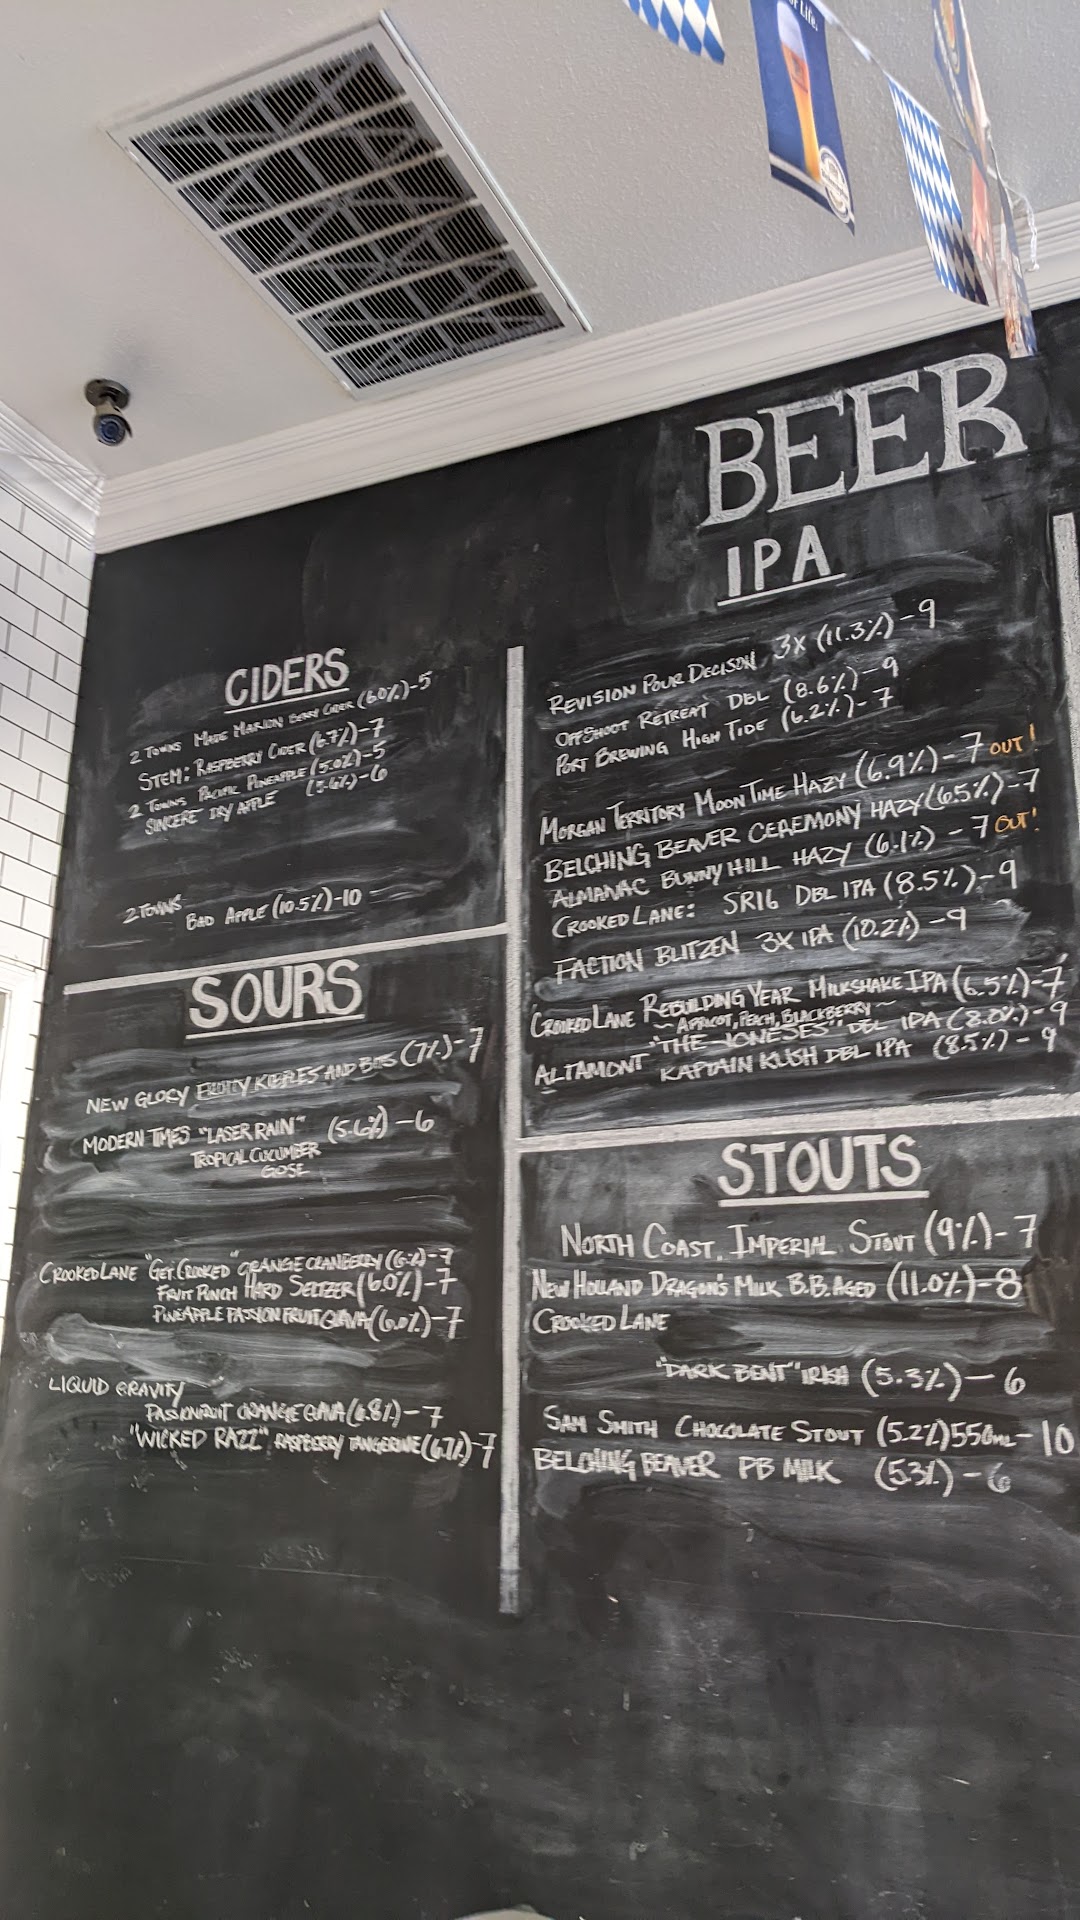 r Life.
BEER
IPA
REVISION POUR DECISON 3X (11.3%)-9
OFFSHOOT RETREAT DBL (8.6%)-9
PORT BREWING HIGH TIDE (6.2%)-7
MORGAN TERRITORY MOON TIME HAZY (6.9%)-7 OUT!
BELCHING BEAVER CEREMONY HAZY (6.5%)-7
ALMANAC BUNNY HILL HAZY (6.1%)-7 OUT!
CROOKED LANE: SR16 DBL IPA (8.5%)-9
FACTION BLITZEN 3X IPA (10.2%)-9
CROOKED LANE REBUILDING YEAR MILKSHAKE IPA (6.5%)-7
~APRICOT, PEACH, BLACKBERRY~
"THE JONESES" DBL IPA (8.0%)-9
ALTAMONT KAPTAIN KUSH DBL IPA (8.5%)-9
CIDERS
2 TOWNS MADE MARION BERRY CIDER (6.0%)-5
STEM: RASPBERRY CIDER (6.7%)-7
2 TOWNS PACIFIC PINEAPPLE (5.0%)-5
SINCERE DRY APPLE (5.6%)-6
2 TOWNS BAD APPLE (10.5%)-10
SOURS
NEW GLORY FRUITY KIBBLES AND BITS (7%)-7
MODERN TIMES "LASER RAIN" (5.6%)-6
TROPICAL CUCUMBER
GOSE
CROOKED LANE "GET CROOKED" ORANGE CRANBERRY (6%)-7
FRUIT PUNCH HARD SELTZER (6.0%)-7
PINEAPPLE PASSIONFRUIT GUAVA (6.0%)-7
LIQUID GRAVITY
PASSIONFRUIT ORANGE GUAVA (6.8%)-7
"WICKED RAZZ" RASPBERRY TANGERINE (6.7%)-7
STOUTS
NORTH COAST, IMPERIAL STOUT (9%)-7
NEW HOLLAND DRAGON'S MILK B.B. AGED (11.0%)-8
CROOKED LANE
"DARK BENT" IRISH (5.3%)-6
SAM SMITH CHOCOLATE STOUT (5.2%) 550mL-10
BELCHING BEAVER PB MILK (5.3%)-6